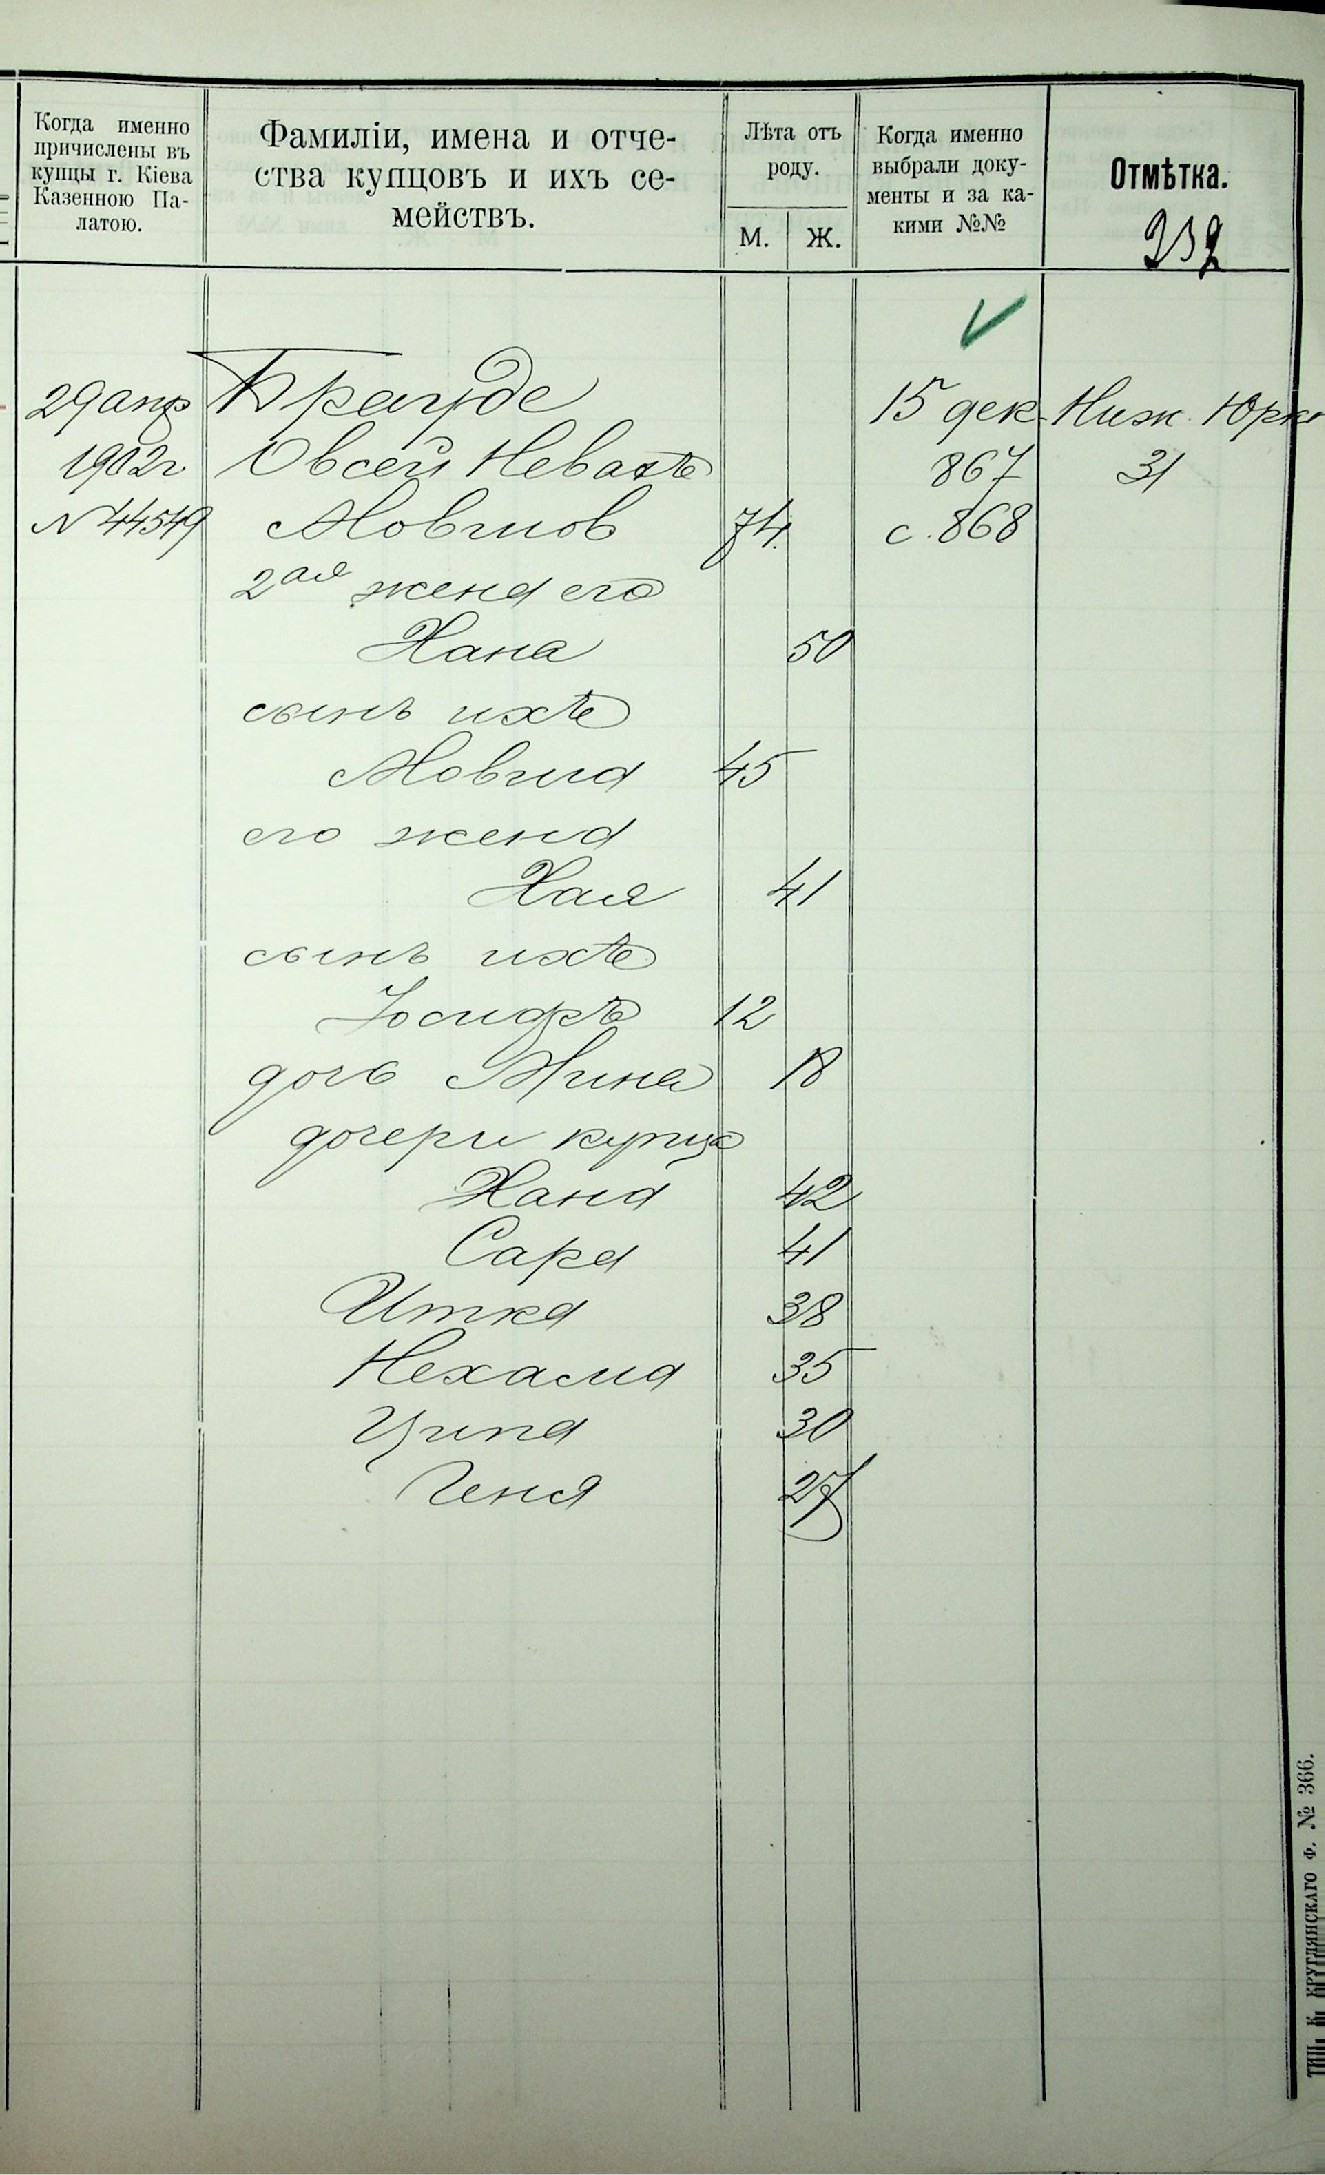 Когда именно
причислены въ
купцы г. Кіева
Казенною Па-
латою.
Фамиліи, имена и отче-
ства купцовъ и ихъ се-
мействъ.
Лѣта отъ
роду.
М. Ж.
Когда именно
выбрали доку-
менты и за ка-
кими №№
Отмѣтка.
232
29 апр Брауде 15 дек Ниж. Юрк
1902 г Овсей Невахъ 867 31
N 44549 Мовшов 74. с. 868
2ая жена его
Хана 50
сынъ ихъ
Мовша 45
его жена
Хая 41
сынъ ихъ
Іосифъ 12
дочь Мина 18
дочери купца
Хана 42
Сара 41
Итка 38
Нехама 35
Ципа 30
Геня 27
ТИП. К. КРУГЛЯНСКАГО Ф. № 366.